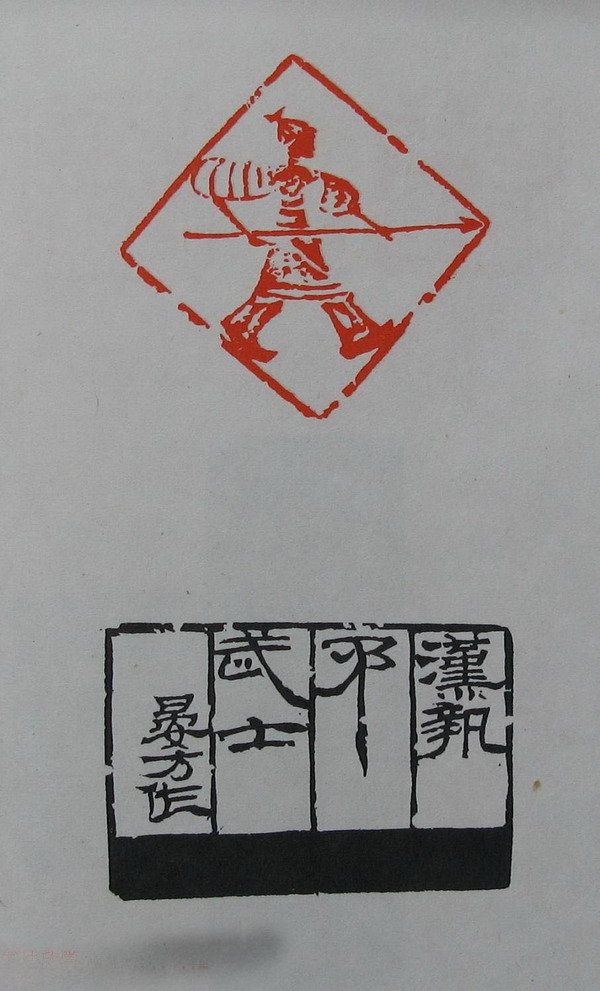 漢執
矛
武士
晏方作